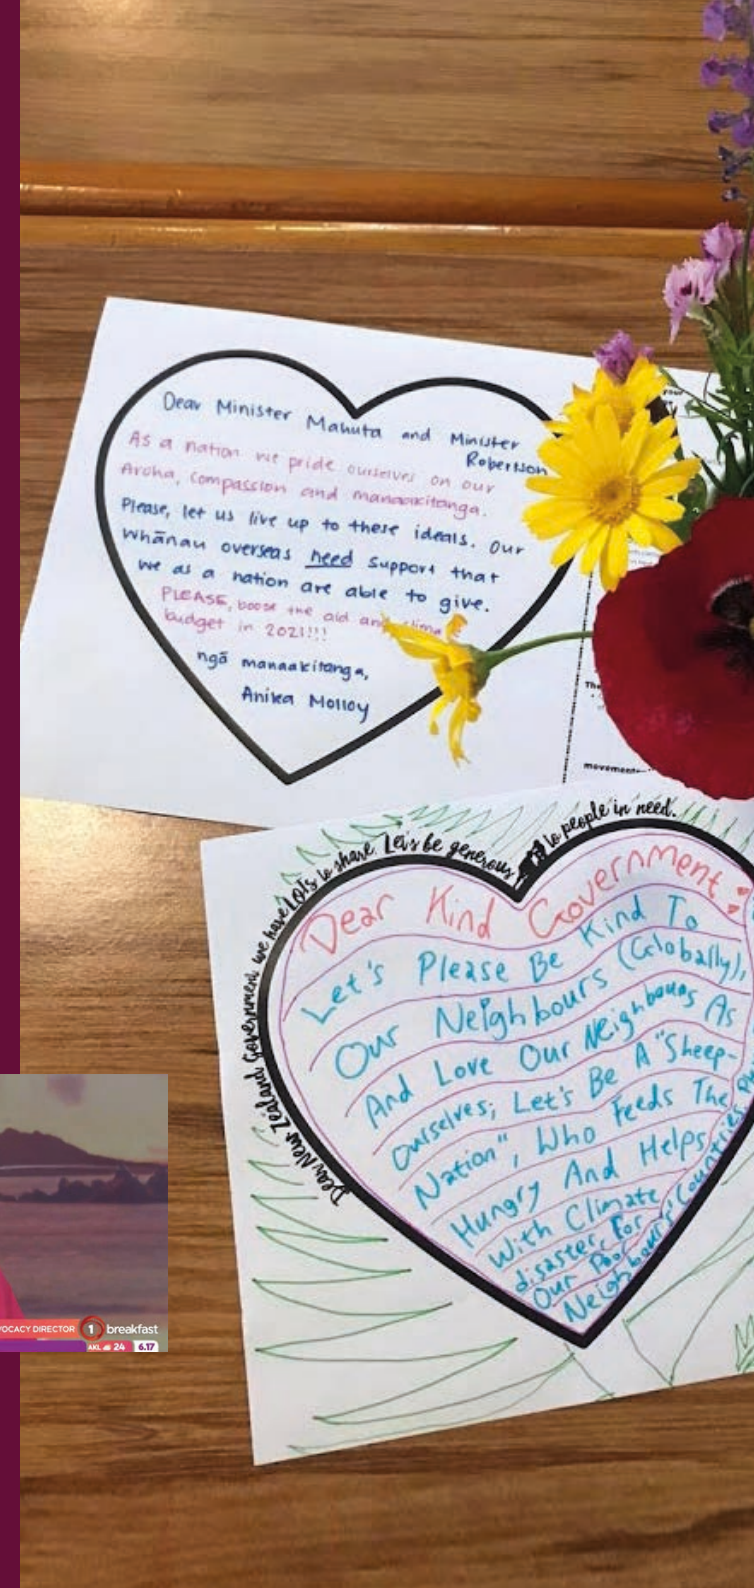 Dear Minister Mahuta and Minister
Robertson
As a nation we pride ourselves on our
Aroha, compassion and manaakitanga.
Please, let us live up to these ideals. Our
whānau overseas need support that
we as a nation are able to give.
PLEASE, boost the aid and
budget in 2021!!!
ngā manaakitanga,
Anika Molloy
movement
Dear New Zealand Government we have LOTS to share Let's be generous to people in need.
Dear Kind Government,
Let's Please Be Kind To
Our Neighbours (Globally),
And Love Our Neighbours As
Ourselves; Let's Be A "Sheep-
Nation", Who Feeds The
Hungry And Helps
With Climate
disaster, For
Our Poor
Neighbours' Countries
VOCACY DIRECTOR 1 breakfast
AKL 24 6.17